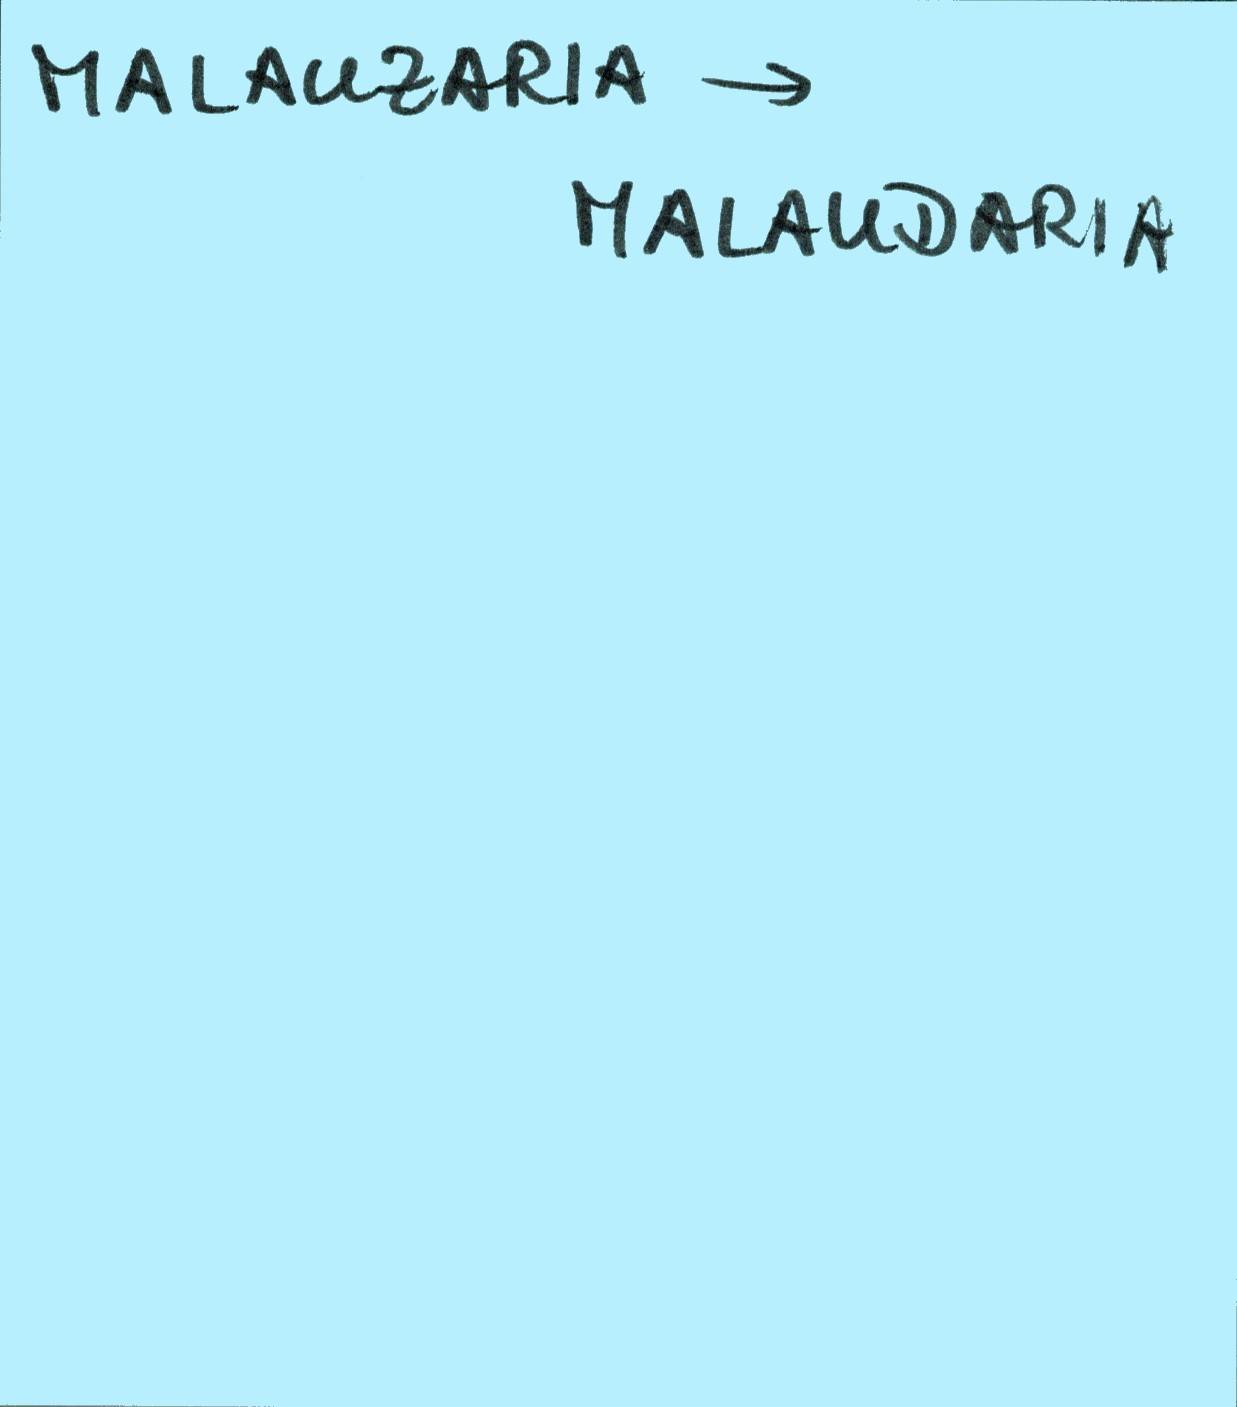 MALAUZARIA →
MALAUDARIA